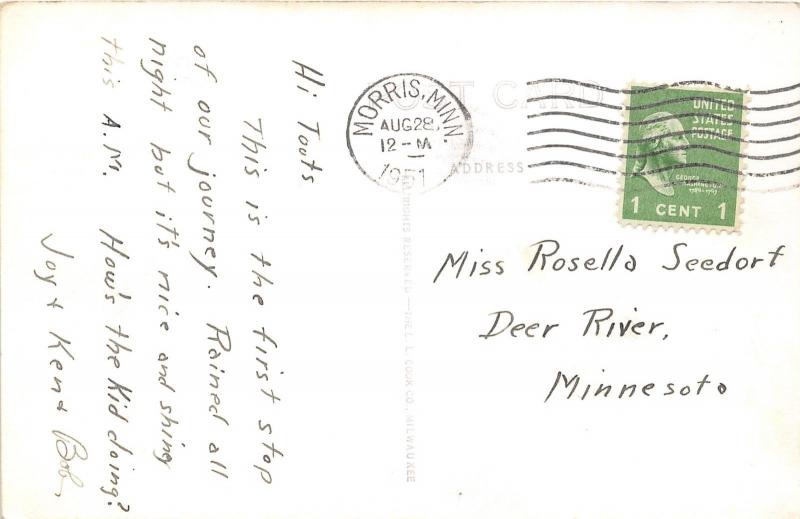 Hi Toots
This is the first stop
of our journey. Rained all
night but it's nice and shiny
this A.M. How's the Kid doing?
Joy + Ken + Bob.
POST CARD
ADDRESS
MORRIS, MINN.
AUG 28
12-M
1951
UNITED
STATES
POSTAGE
GEORGE
WASHINGTON
1789-1797
1 CENT 1
RIGHTS RESERVED—THE L. L. COOK CO., MILWAUKEE
Miss Rosella Seedorf
Deer River,
Minnesota